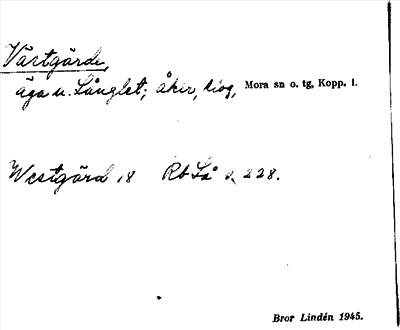 Västgärde,
äga u. Långlet; åker, skog, Mora sn o. tg, Kopp. l.
Westgärd 18 Rb Så s. 228.
Bror Lindén 1945.